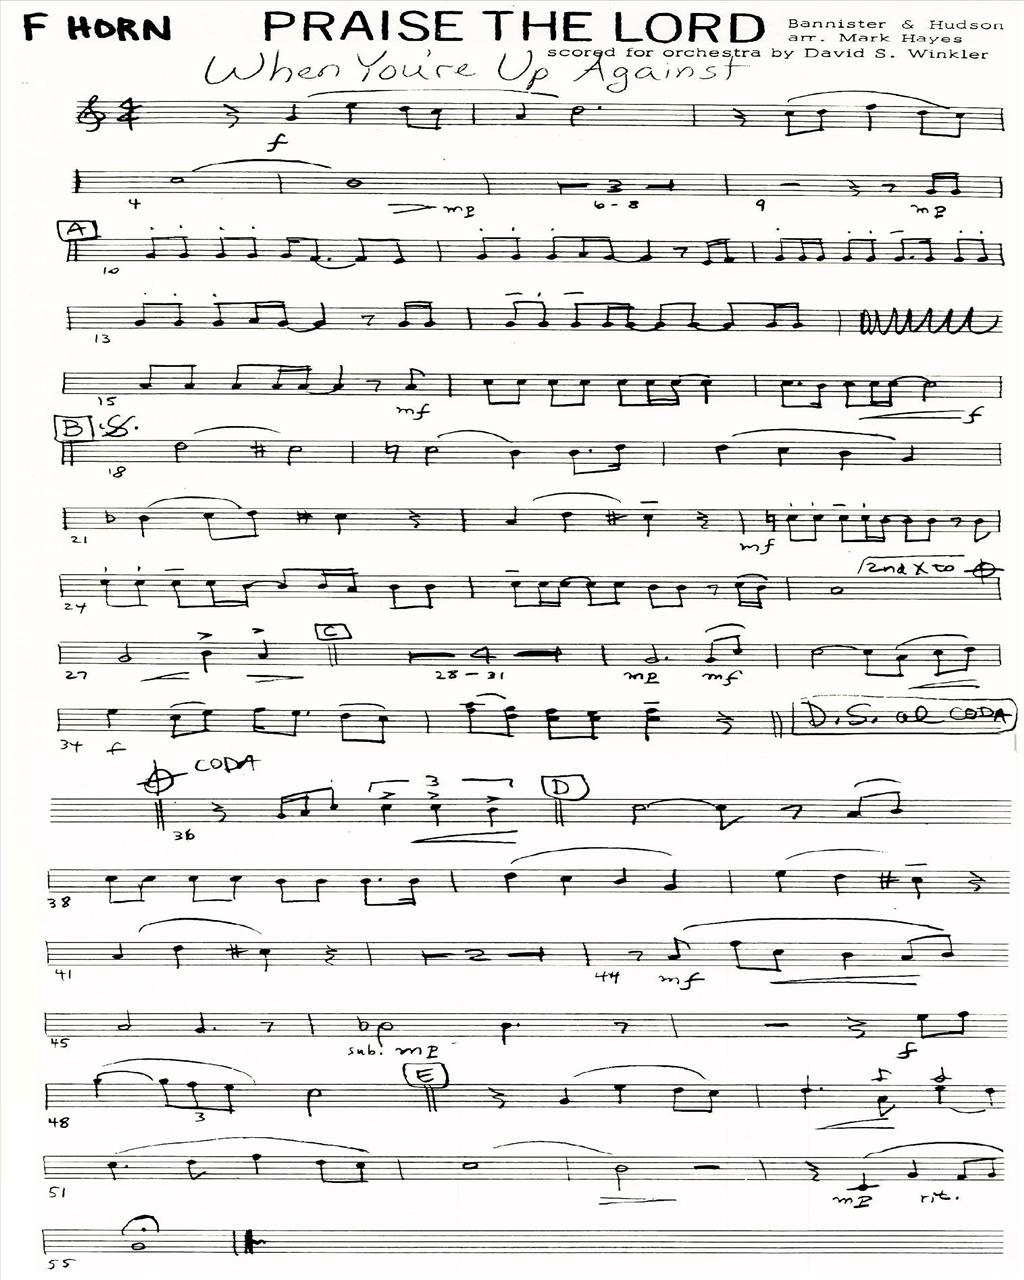 F HORN
PRAISE THE LORD
Bannister & Hudson
arr. Mark Hayes
scored for orchestra by David S. Winkler
When You're Up Against
f
4
mp
3
6-8
9
mp
A
10
13
15
mf
f
B
18
21
mf
24
2nd X to
27
C
4
28-31
mp
mf
34
f
D.S. al CODA
CODA
36
3
D
38
41
2
44
mf
45
sub. mp
f
48
3
E
51
mp
rit.
55